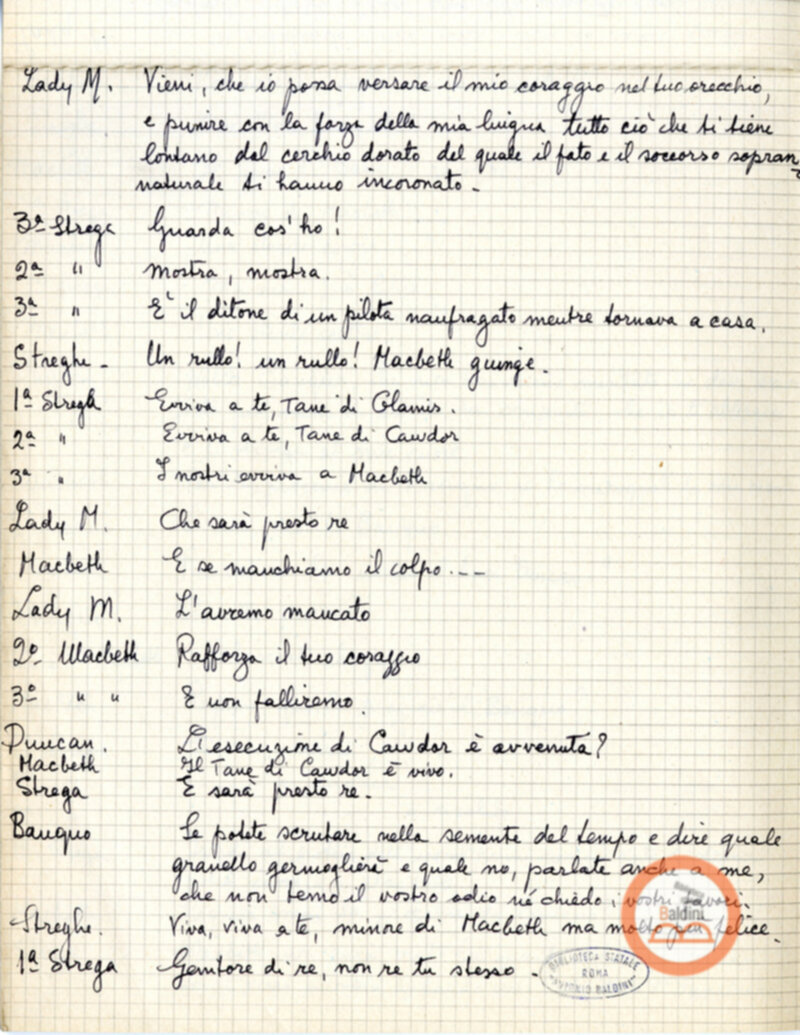 Lady M. Vieni, che io possa versare il mio coraggio nel tuo orecchio,
e punire con la forza della mia lingua tutto ciò che ti tiene
lontano dal cerchio dorato del quale il fato e il soccorso sopran
naturale ti hanno incoronato.
3ª Strega Guarda cos'ho!
2ª " Mostra, mostra.
3ª " E' il ditone di un pilota naufragato mentre tornava a casa.
Streghe - Un rullo! un rullo! Macbeth giunge.
1ª Strega Evviva a te, Tane di Glamis.
2ª " Evviva a te, Tane di Cawdor
3ª " I nostri evviva a Macbeth
Lady M. Che sarà presto re
Macbeth E se manchiamo il colpo...
Lady M. L'avremo mancato
2º Macbeth Rafforza il tuo coraggio
3º " " E non falliremo.
Duncan. L'esecuzione di Cawdor è avvenuta?
Macbeth Il Tane di Cawdor è vivo.
Strega E sarà presto re.
Banquo Se potete scrutare nella semente del tempo e dire quale
granello germoglierà e quale no, parlate anche a me,
che non temo il vostro odio né chiedo i vostri favori.
Streghe. Viva, viva a te, minore di Macbeth ma molto più felice.
1ª Strega Genitore di re, non re tu stesso.
Baldini
BIBLIOTECA STATALE
ROMA
"ANTONIO BALDINI"